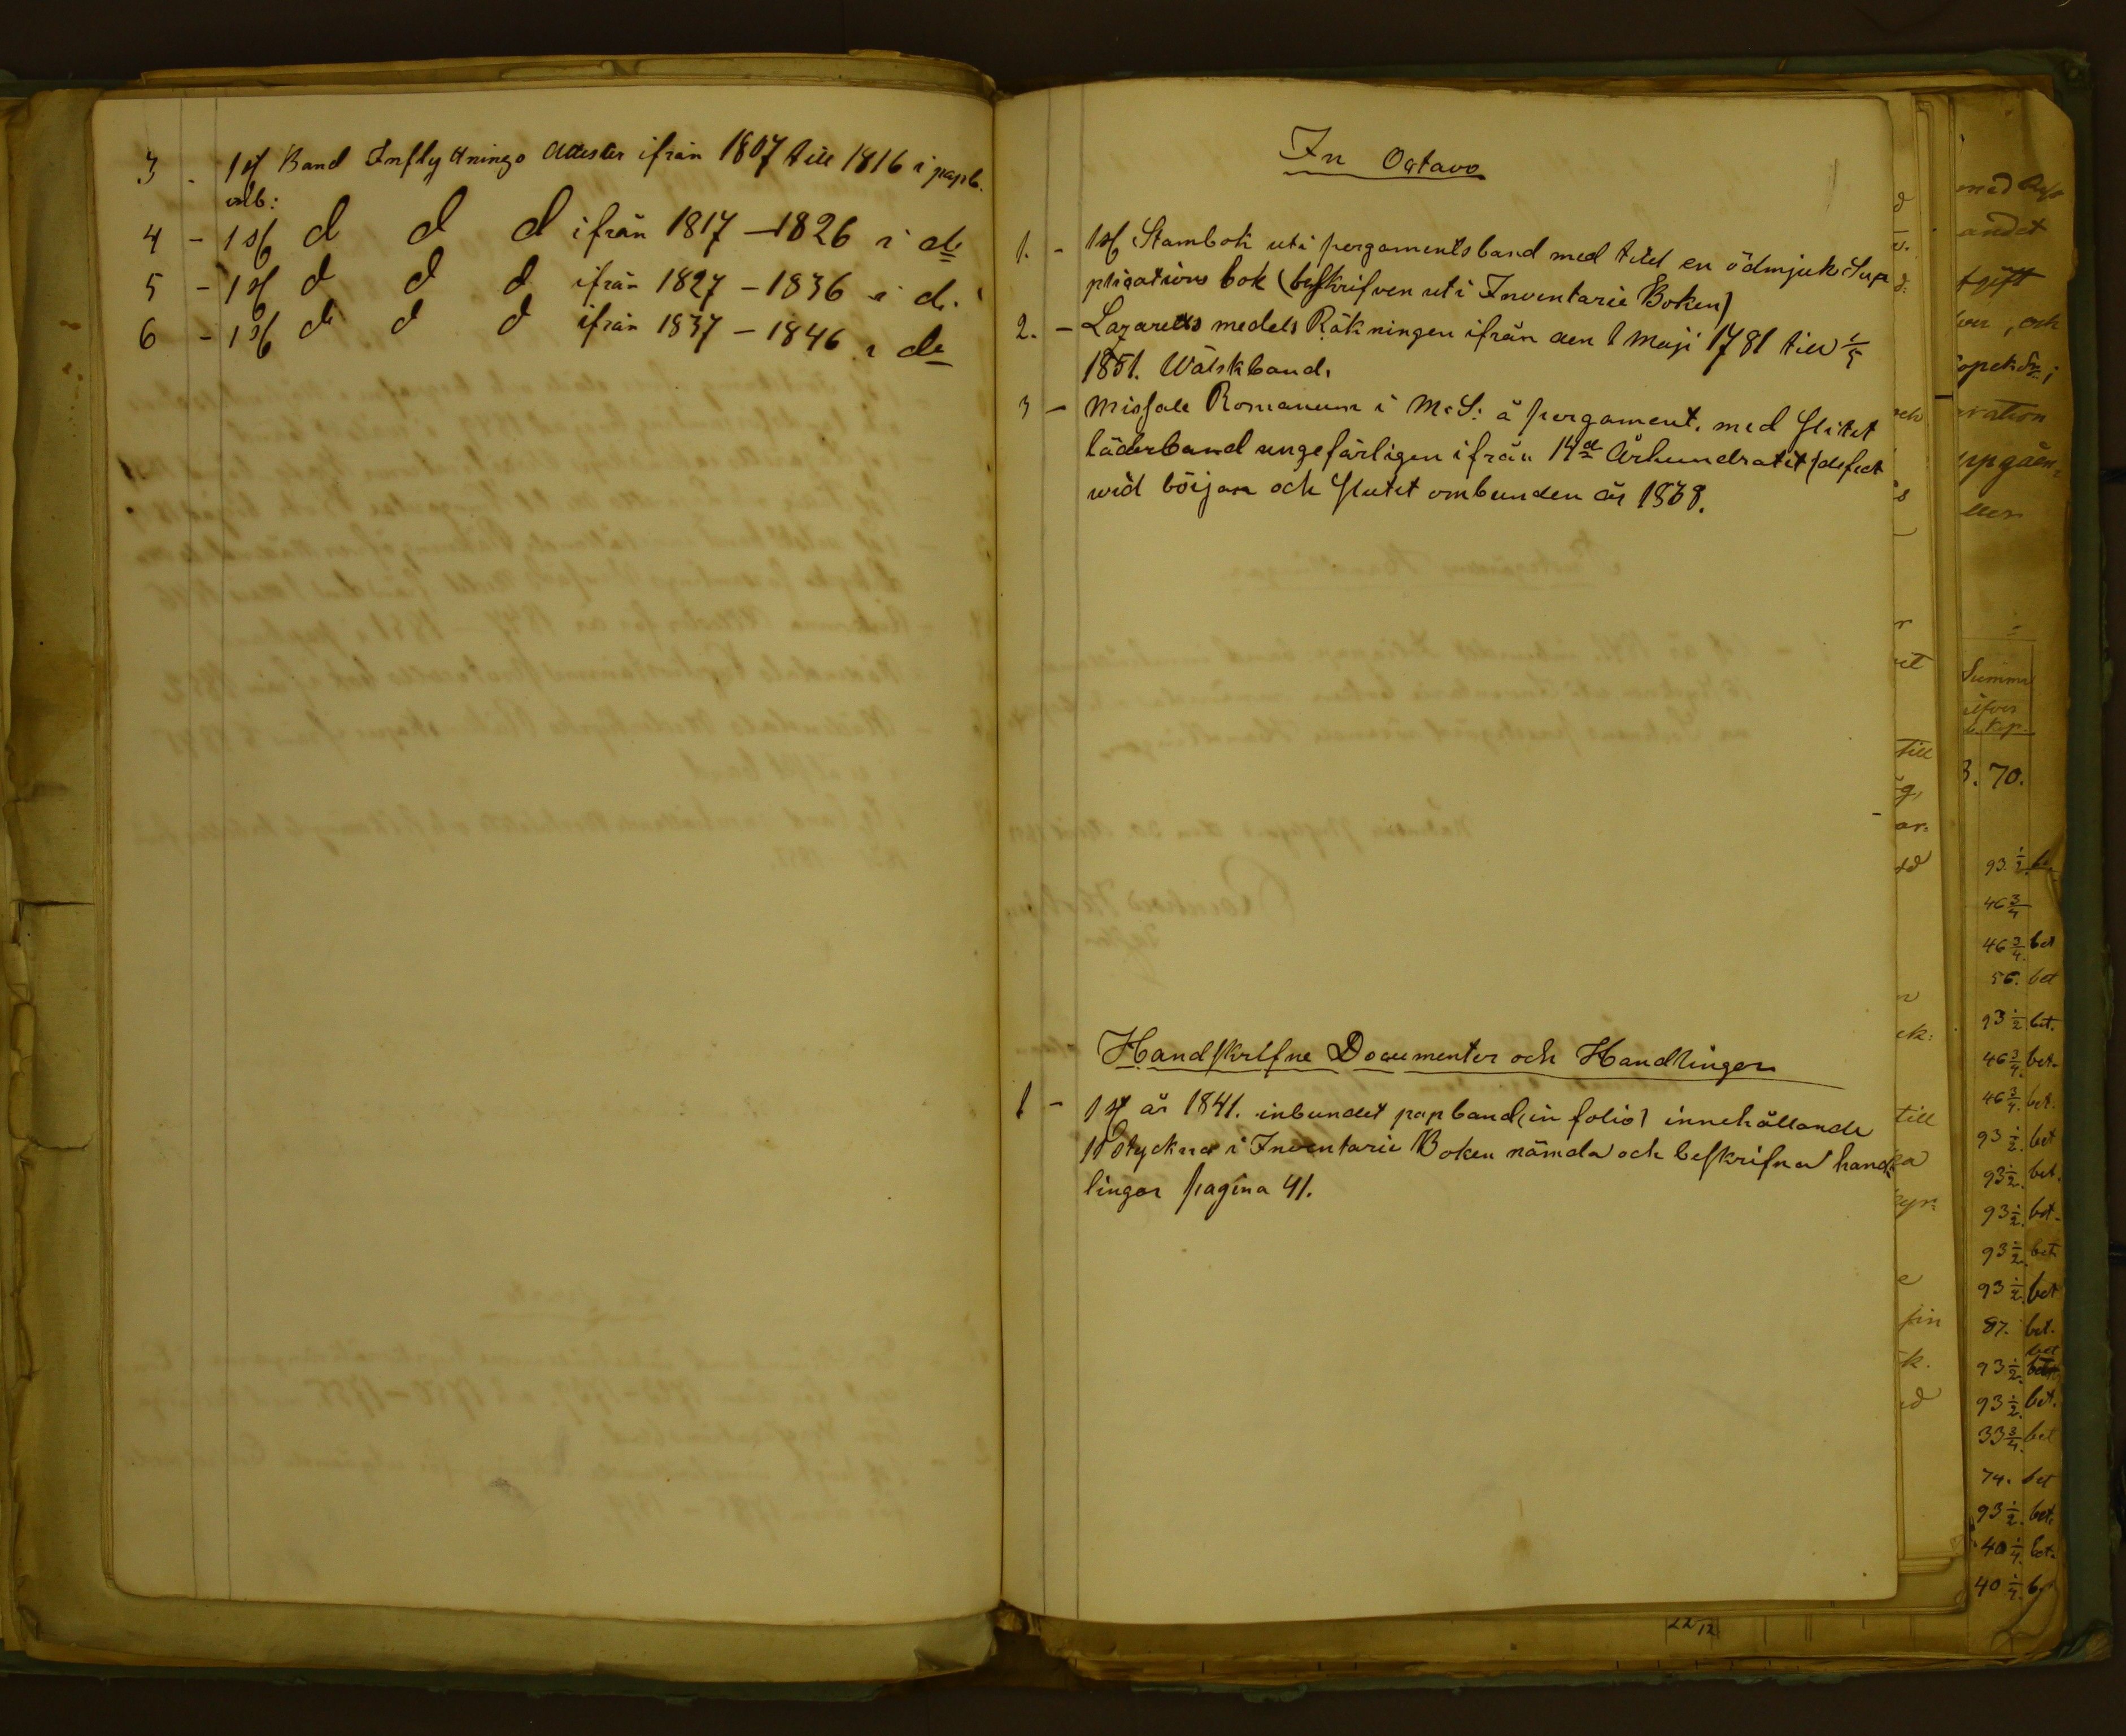 3 - 1 st Band Inflyttnings Attester ifrån 1807 till 1816 i papb.
4 - 1 st d d d ifrån 1817 - 1826 i do
5 - 1 st d d d ifrån 1827 - 1836 i d.
6 - 1 st do d d ifrån 1837 - 1846 i do
In Octavo
1. - 1 st Stambok uti pergamentsband med titel en ödmjuk Sup
plications bok (beskrifven uti Inventarie Boken)
2. - Lazaretts medels Räkningen ifrån den 1 Maji 1781 till 1/5
1851. Wälskband.
3 - Missale Romanum i M.S: å pergament. med slitet
läderband ungefärligen ifrån 14de Århundratet (defect
wid början och slutet ombunden år 1838.
Handskrifne Documenter och Handlingar
1 - 1 st år 1841. inbundet papband (in folio) innehållande
10 Stycken i Inventarie Boken nämda och beskrifna hand
lingar pagina 41.
med
andet
och
ration
uppgåen=
Summa
3. 70.
93 1/2
46 3/4
46 3/4 bet
56. bet
93 1/2 bet.
46 3/4 bet.
46 3/4 bet.
93 1/2 bet
93 1/2 bet.
93 1/2 bet.
93 1/2 bet
93 1/2 bet
87. bet.
93 1/2 bet
93 1/2 bet.
33 3/4 bet
74. bet
93 1/2 bet.
40 1/4 bet.
40 1/4
till
till